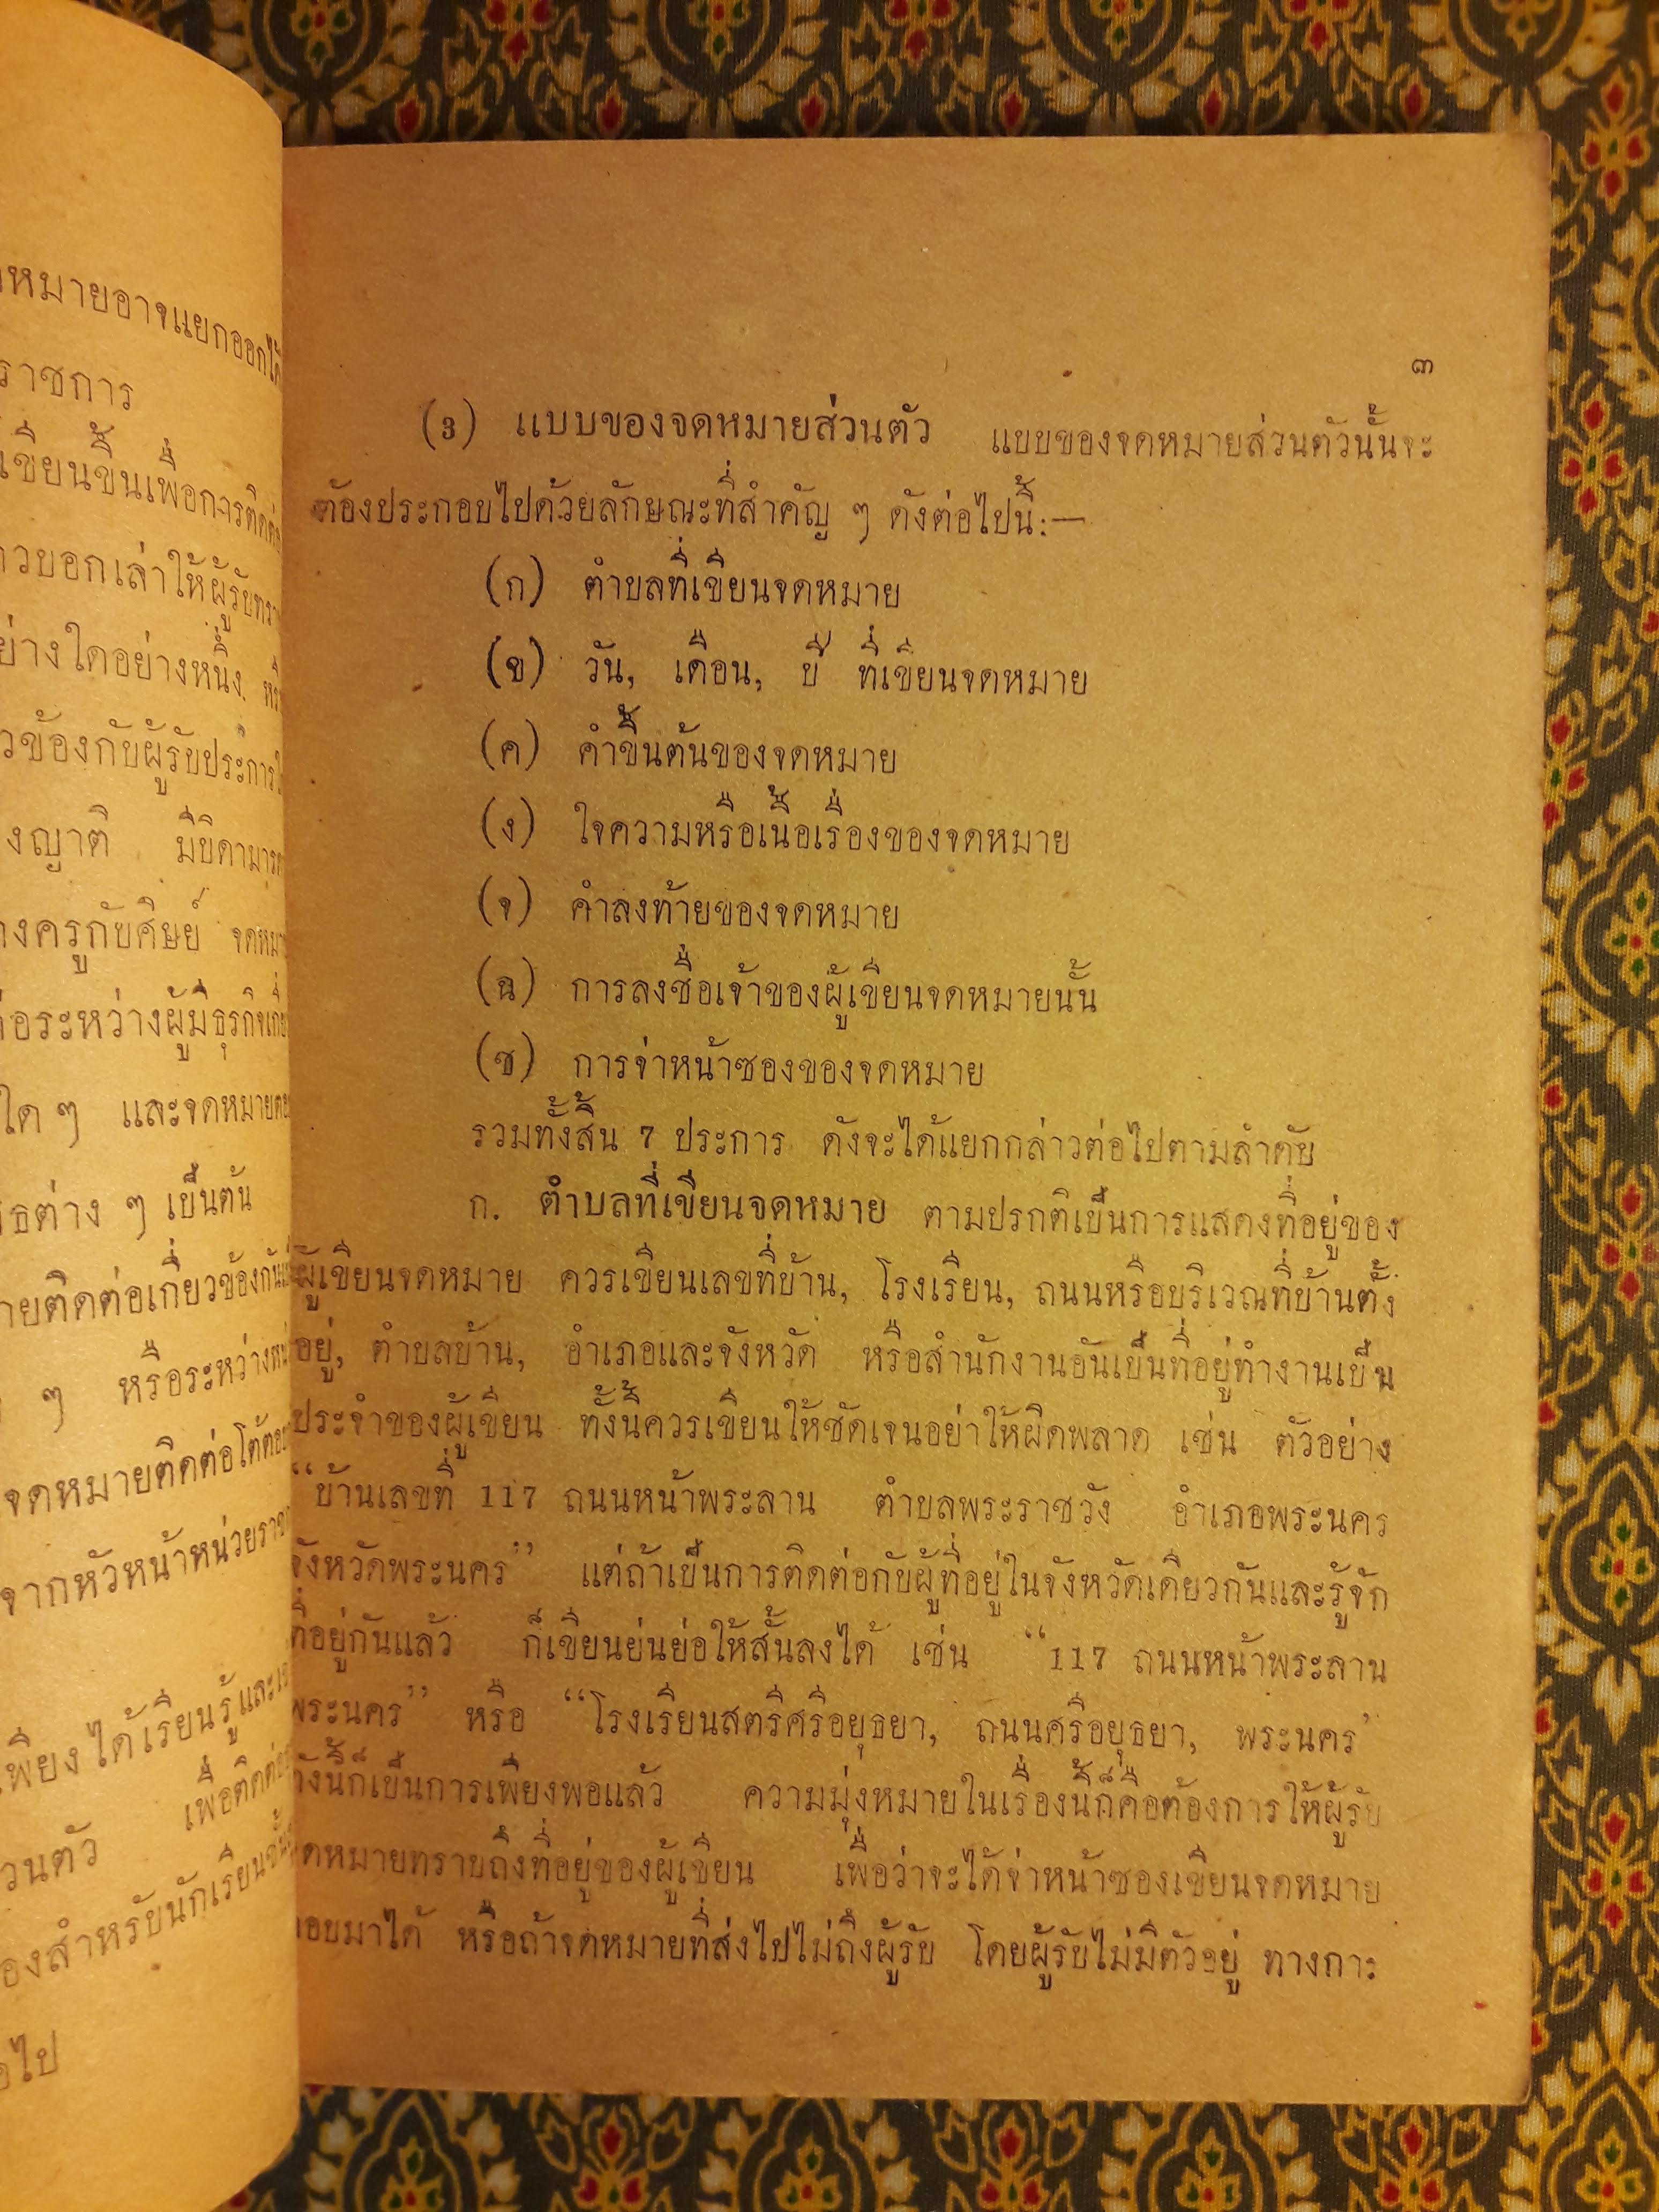 หมายอาจแยกออกได้
ราชการ
เขียนขึ้นเพื่อการติดต่อ
บอกเล่าให้ผู้รับทรา
ย่างใดอย่างหนึ่ง
ข้องกับผู้รับประการใ
งญาติ มีบิดามารด
างครูกับศิษย์ จดหมา
ต่อระหว่างผู้มีธุรกิจเกี่ย
ใด ๆ และจดหมาย
ต่าง ๆ เป็นต้น
ายติดต่อเกี่ยวข้องกัน
ๆ หรือระหว่าง
จดหมายติดต่อโต้ตอบ
จากหัวหน้าหน่วยราช
เพียงได้เรียนรู้และเ
วนตัว เพื่อติดต่อ
องสำหรับนักเรียน
อไป
๓
(3) แบบของจดหมายส่วนตัว แบบของจดหมายส่วนตัวนั้นจะ
ต้องประกอบไปด้วยลักษณะที่สำคัญ ๆ ดังต่อไปนี้:—
(ก) ตำบลที่เขียนจดหมาย
(ข) วัน, เดือน, ปี ที่เขียนจดหมาย
(ค) คำขึ้นต้นของจดหมาย
(ง) ใจความหรือเนื้อเรื่องของจดหมาย
(จ) คำลงท้ายของจดหมาย
(ฉ) การลงชื่อเจ้าของผู้เขียนจดหมายนั้น
(ช) การจ่าหน้าซองของจดหมาย
รวมทั้งสิ้น 7 ประการ ดังจะได้แยกกล่าวต่อไปตามลำดับ
ก. ตำบลที่เขียนจดหมาย ตามปรกติเป็นการแสดงที่อยู่ของ
ผู้เขียนจดหมาย ควรเขียนเลขที่บ้าน, โรงเรียน, ถนนหรือบริเวณที่บ้านตั้ง
อยู่, ตำบลบ้าน, อำเภอและจังหวัด หรือสำนักงานอันเป็นที่อยู่ทำงานเป็น
ประจำของผู้เขียน ทั้งนี้ควรเขียนให้ชัดเจนอย่าให้ผิดพลาด เช่น ตัวอย่าง
“บ้านเลขที่ 117 ถนนหน้าพระลาน ตำบลพระราชวัง อำเภอพระนคร
จังหวัดพระนคร” แต่ถ้าเป็นการติดต่อกับผู้ที่อยู่ในจังหวัดเดียวกันและรู้จัก
ที่อยู่กันแล้ว ก็เขียนย่นย่อให้สั้นลงได้ เช่น “117 ถนนหน้าพระลาน
พระนคร” หรือ “โรงเรียนสตรีศรีอยุธยา, ถนนศรีอยุธยา, พระนคร”
างนี้ก็เป็นการเพียงพอแล้ว ความมุ่งหมายในเรื่องนี้ก็คือต้องการให้ผู้รับ
จดหมายทราบถึงที่อยู่ของผู้เขียน เพื่อว่าจะได้จ่าหน้าซองเขียนจดหมาย
ตอบมาได้ หรือถ้าจดหมายที่ส่งไปไม่ถึงผู้รับ โดยผู้รับไม่มีตัวอยู่ ทางการ